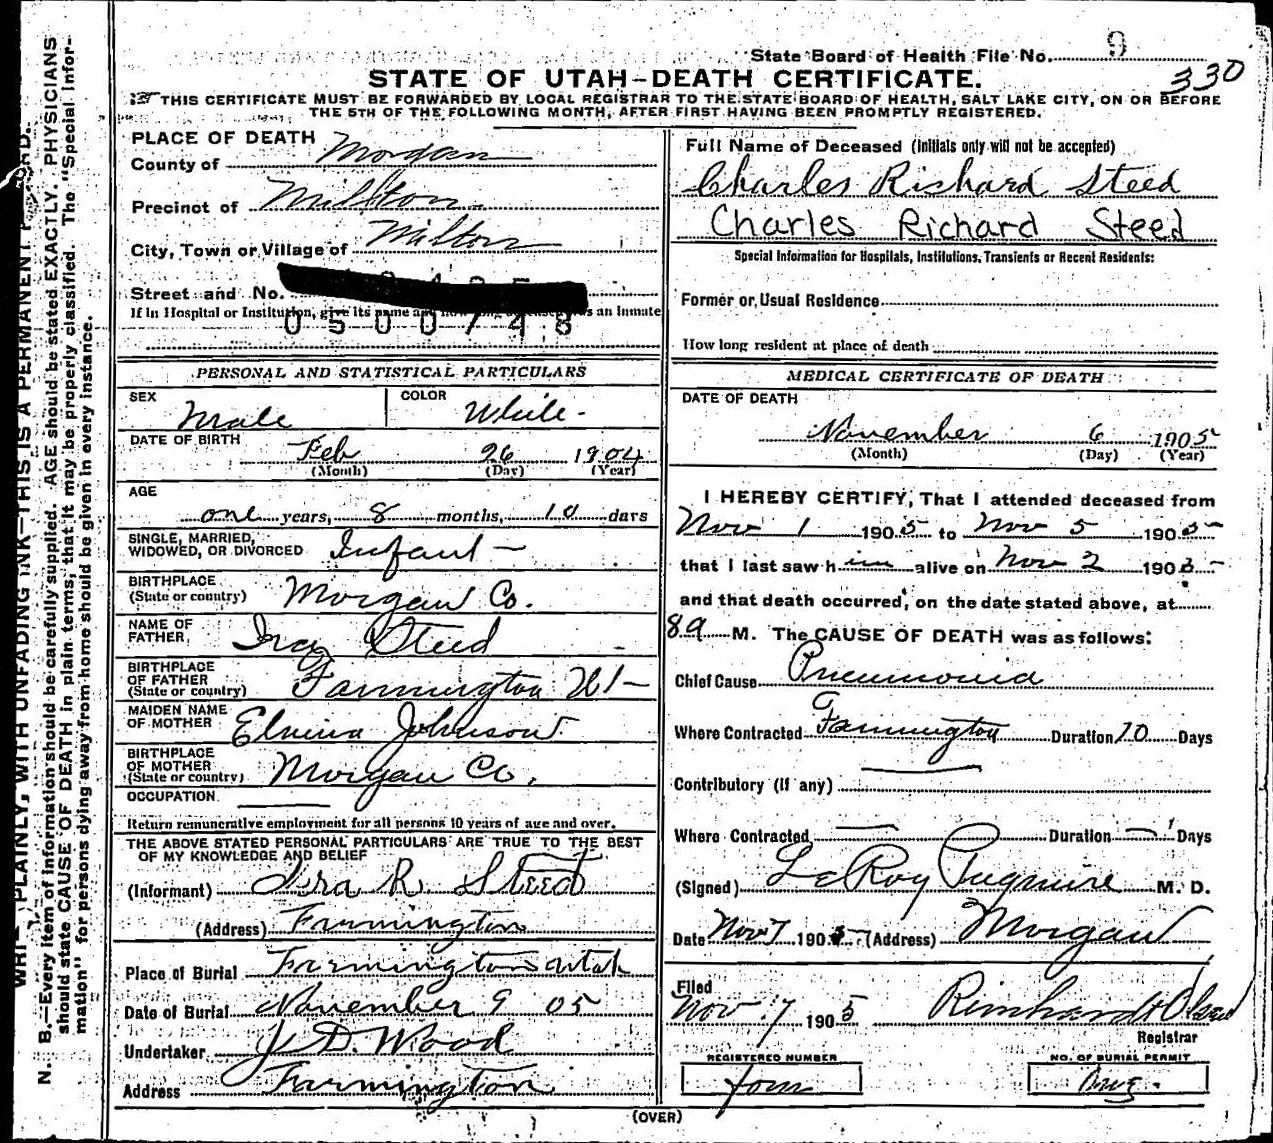 State Board of Health File No. 9
330
STATE OF UTAH–DEATH CERTIFICATE.
THIS CERTIFICATE MUST BE FORWARDED BY LOCAL REGISTRAR TO THE STATE BOARD OF HEALTH, SALT LAKE CITY, ON OR BEFORE
THE 5TH OF THE FOLLOWING MONTH, AFTER FIRST HAVING BEEN PROMPTLY REGISTERED.
PLACE OF DEATH
County of Morgan
Precinct of Milton
City, Town or Village of Milton
Street and No.
If in Hospital or Institution, give its name and an inmate
0500748
PERSONAL AND STATISTICAL PARTICULARS
SEX Male COLOR White
DATE OF BIRTH Feb 26 1904
(Month) (Day) (Year)
AGE
one years, 8 months, 10 days
SINGLE, MARRIED,
WIDOWED, OR DIVORCED Infant –
BIRTHPLACE
(State or country) Morgan Co.
NAME OF
FATHER, Ira Steed
BIRTHPLACE
OF FATHER
(State or country) Farmington Ut –
MAIDEN NAME
OF MOTHER Elmina Johnson
BIRTHPLACE
OF MOTHER
(State or country) Morgan Co.
OCCUPATION
Return remunerative employment for all persons 10 years of age and over.
THE ABOVE STATED PERSONAL PARTICULARS ARE TRUE TO THE BEST
OF MY KNOWLEDGE AND BELIEF
(Informant) Ira R. Steed
(Address) Farmington
Place of Burial Farmington Utah
Date of Burial November 9 05
Undertaker J. D. Wood
Address Farmington
Full Name of Deceased (Initials only will not be accepted)
Charles Richard Steed
Charles Richard Steed
Special Information for Hospitals, Institutions, Transients or Recent Residents:
Former or Usual Residence
How long resident at place of death
MEDICAL CERTIFICATE OF DEATH
DATE OF DEATH
November 6 1905
(Month) (Day) (Year)
I HEREBY CERTIFY, That I attended deceased from
Nov 1 1905 to Nov 5 1905
that I last saw him alive on Nov 2 190
and that death occurred, on the date stated above, at
8 a M. The CAUSE OF DEATH was as follows:
Chief Cause Pneumonia
Where Contracted Farmington Duration 10 Days
Contributory (if any)
Where Contracted — Duration — Days
(Signed) LeRoy Pugmire M. D.
Date Nov 7 1905 (Address) Morgan
Filed
Nov 7 1905 Reinhardt Olsen
Registrar
REGISTERED NUMBER
NO. OF BURIAL PERMIT
(OVER)
PLAINLY, WITH UNFADING INK—THIS IS A PERMANENT
N. B.—Every item of information should be carefully supplied. AGE should be stated EXACTLY. PHYSICIANS
should state CAUSE OF DEATH in plain terms, that it may be properly classified. The "Special Infor-
mation" for persons dying away from home should be given in every instance.